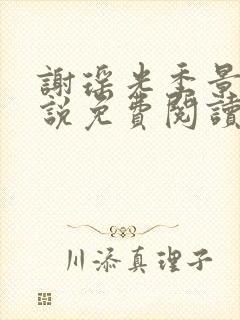 謝瑤光季景
說免費閱讀
川添真理子